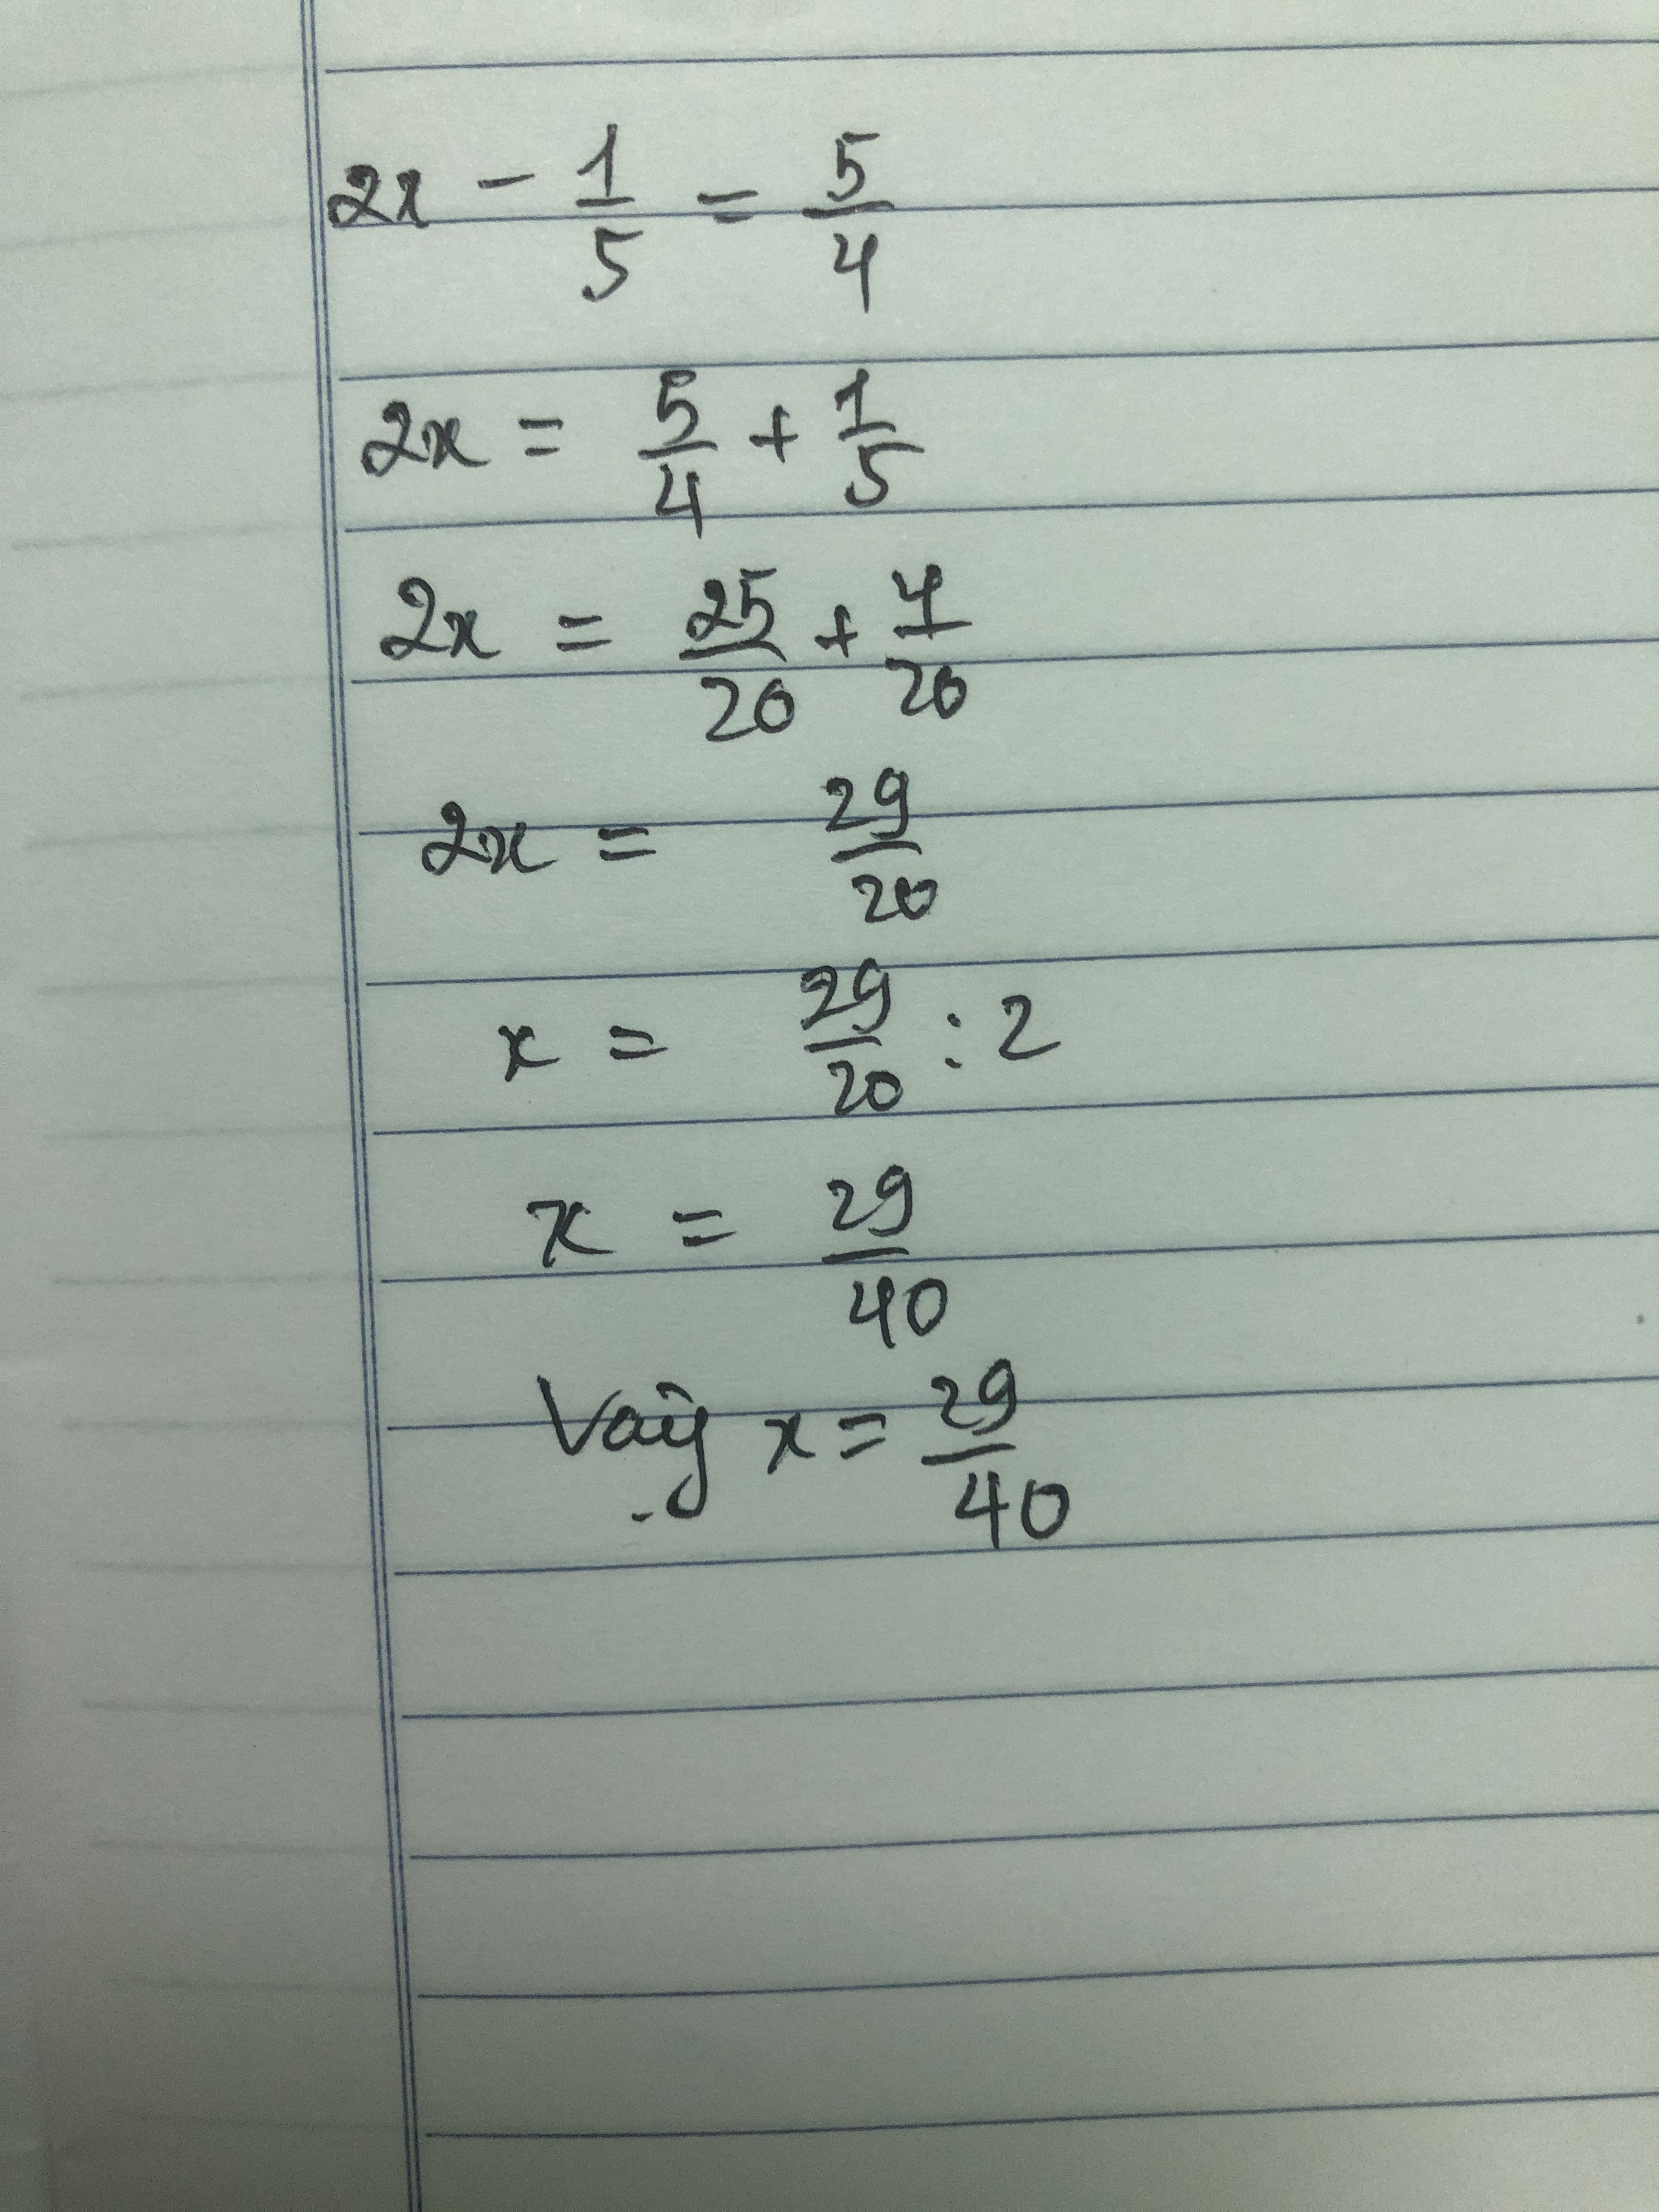 2x - 1/5 = 5/4
2x = 5/4 + 1/5
2x = 25/20 + 4/20
2x = 29/20
x = 29/20 : 2
x = 29/40
Vậy x = 29/40